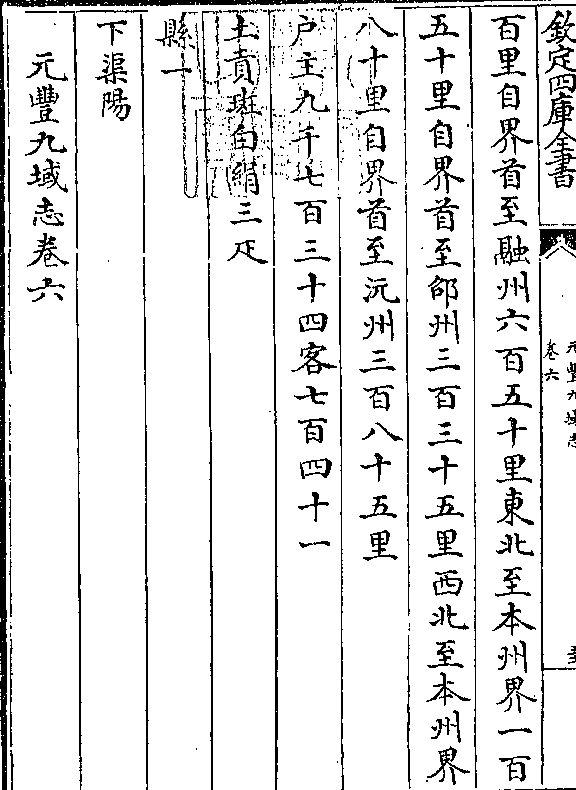 欽定四庫全書
元豐九域志
卷六
百里自界首至融州六百五十里東北至本州界一百
五十里自界首至邵州三百三十五里西北至本州界
八十里自界首至沅州三百八十五里
户主九千七百三十四客七百四十一
土貢斑白絹三疋
縣一
下渠陽
元豐九域志卷六